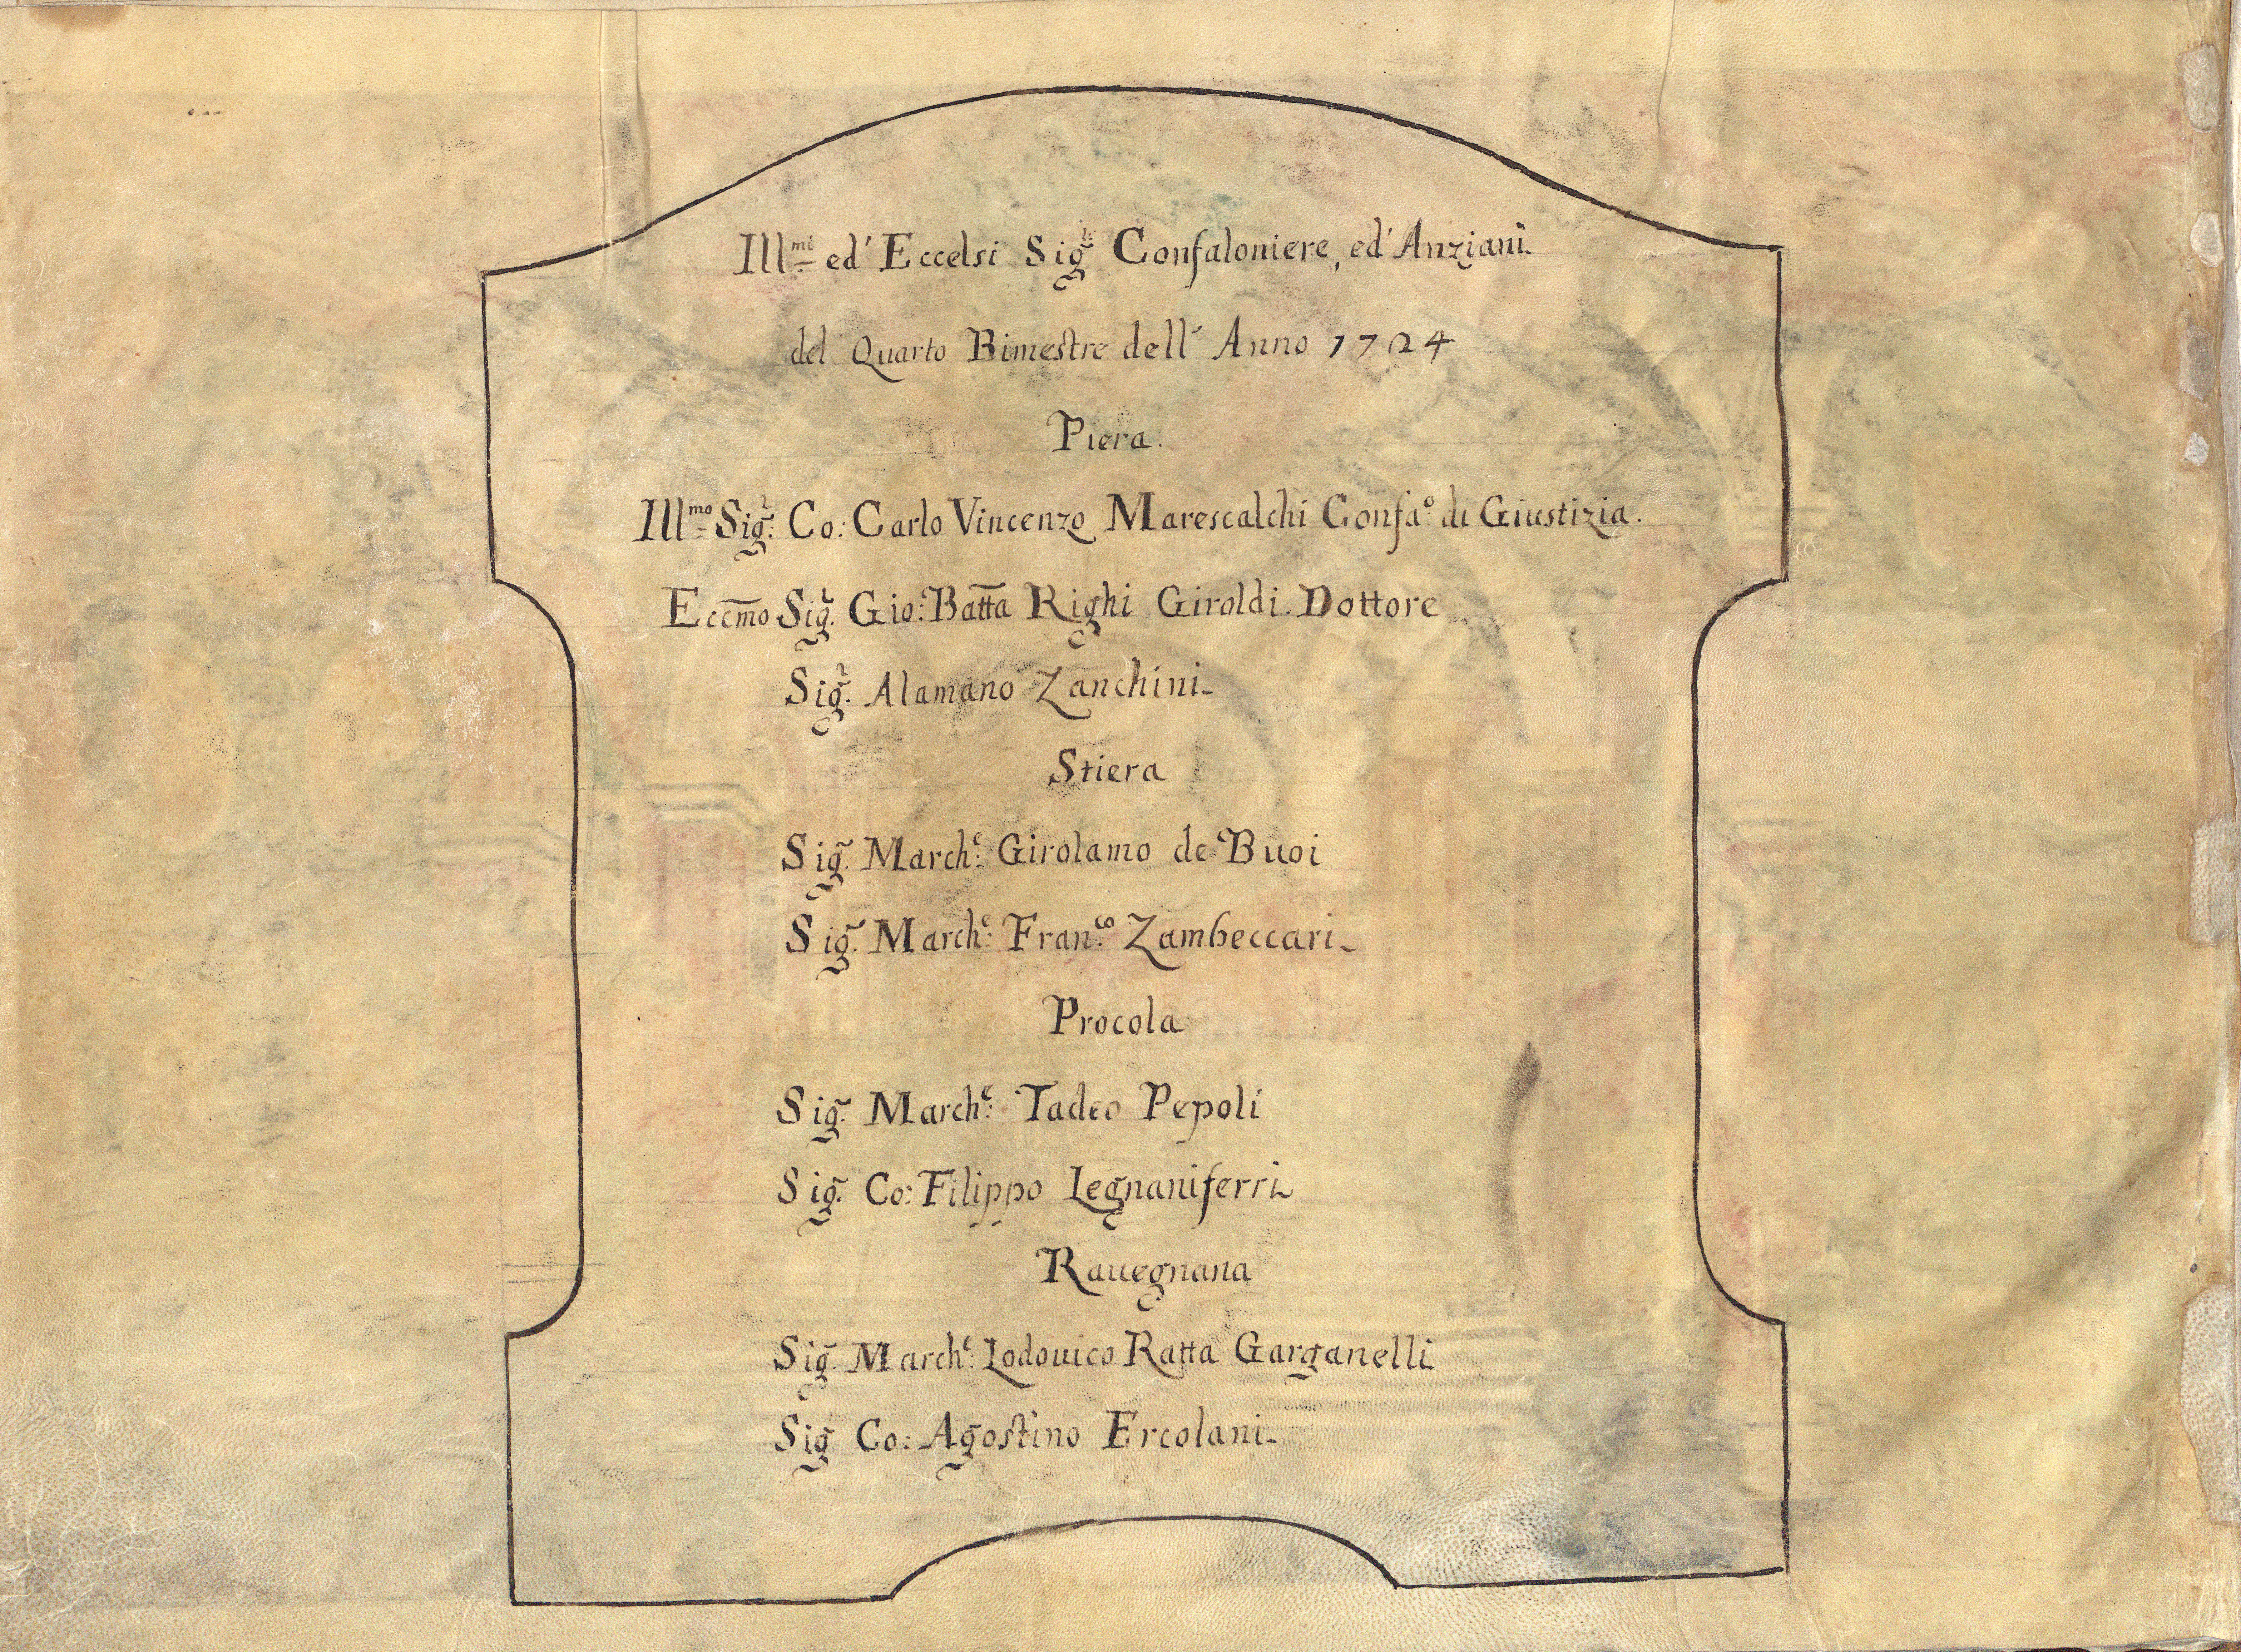 Ill.mi ed' Eccelsi Sig.ri Confaloniere, ed' Anziani
del Quarto Bimestre dell' Anno 1724
Piera.
Ill.mo Sig.r Co: Carlo Vincenzo Marescalchi Confa.o di Giustizia.
Eccm̄o Sig.r Gio: Batt̄a Righi Giroldi. Dottore
Sig.r Alamano Zanchini
Stiera
Sig.r March.e Girolamo de Buoi
Sig.r March.e Fran.co Zambeccari
Procola
Sig.r March.e Tadeo Pepoli
Sig.r Co: Filippo Legnaniferri
Rauegnana
Sig.r March.e Lodouico Ratta Garganelli
Sig.r Co: Agostino Ercolani